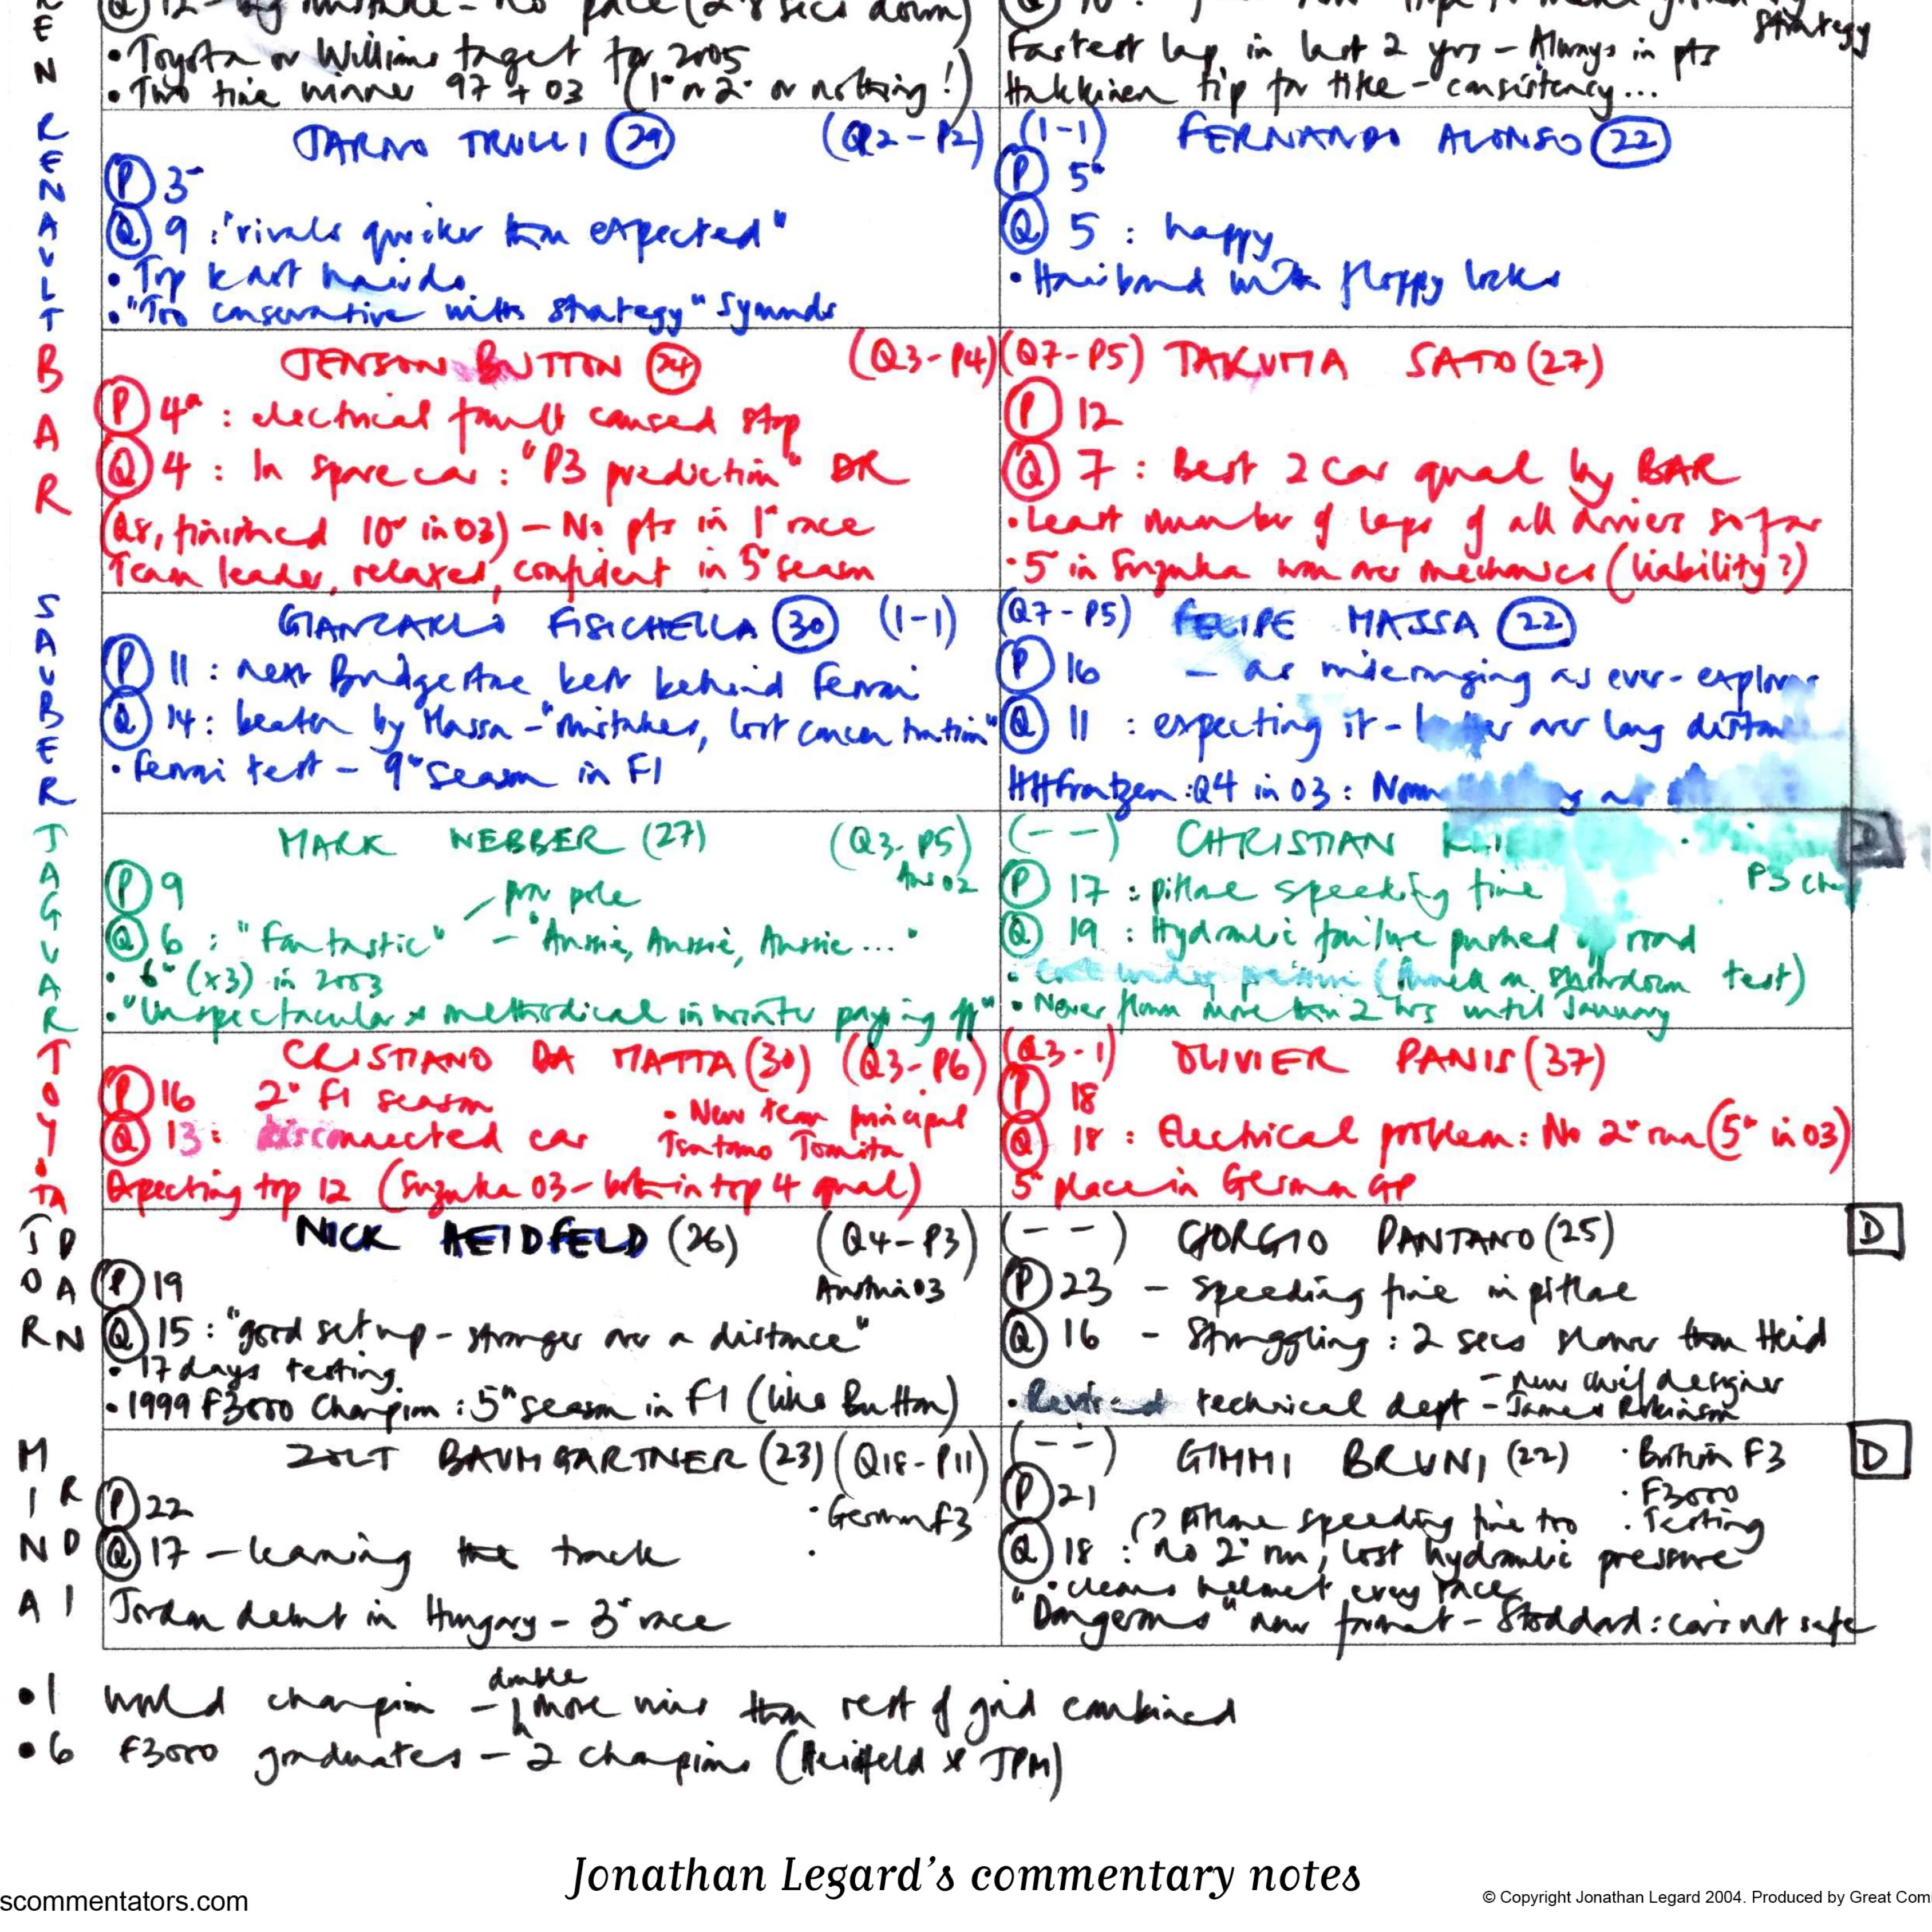 Q 12 - big mistake - no pace (2.8 secs down)
• Toyota or Williams target for 2005
• Two time winner 97 + 03 (1st or 2nd or nothing!)
strategy
Fastest lap in last 2 yrs - Always in pts
Hakkinen tip for title - consistency...
RENAULT
JARNO TRULLI 29 (Q2 - P2)
P 3
Q 9 : "rivals quicker than expected"
• Top kart hairdo
• "Too conservative with strategy" Symonds
(1-1) FERNANDO ALONSO 22
P 5
Q 5 : happy
• Hairband with floppy locks
BAR
JENSON BUTTON 24 (Q3 - P4)
P 4 : electrical fault caused stop
Q 4 : In spare car : "P3 prediction" DR
(Q8, finished 10 in 03) - No pts in 1st race
Team leader, relaxed, confident in 5 season
(Q7 - P5) TAKUMA SATO (27)
P 12
Q 7 : Best 2 car qual by BAR
• Least number of laps of all drivers so far
• 5 in Suzuka won over mechanics (liability?)
SAUBER
GIANCARLO FISICHELLA 30 (1-1)
P 11 : next Bridgestone best behind Ferrari
Q 14 : beaten by Massa - "mistakes, lost concentration"
• Ferrari test - 9th season in F1
(Q7 - P5) FELIPE MASSA 22
P 16 - as wideranging as ever - explorer
Q 11 : expecting it - better over long distan
HHFrentzen : Q4 in 03 :
JAGUAR
MARK WEBBER (27) (Q3 - P5)
Aus 02
P 9
pov pole
Q 6 : "Fantastic" - "Aussie, Aussie, Aussie..."
• 6th (x3) in 2003
• "Unspectacular & methodical in winter paying off"
(- -) CHRISTIAN KLIE D
P3
P 17 : pitlane speeding fine
Q 19 : Hydraulic failure pushed off road
test)
• Never flown more than 2 hrs until January
TOYOTA
CRISTIANO DA MATTA (30) (Q3 - P6)
P 16 2 F1 season
• New team principal
Q 13 : disconnected car
Tsutomo Tomita
Expecting top 12 (Suzuka 03 - both in top 4 qual)
(Q3 - 1) OLIVIER PANIS (37)
P 18
Q 18 : Electrical problem : No 2 run (5 in 03)
5 place in German GP
JORDAN
NICK HEIDFELD (26) (Q4 - P3)
Austria 03
P 19
Q 15 : "good set up - stronger over a distance"
• 17 days testing
• 1999 F3000 Champion : 5th season in F1 (like Button)
(- -) GIORGIO PANTANO (25) D
P 23 - Speeding fine in pitlane
Q 16 - Struggling : 2 secs slower than Heid
- new chief designer
• technical dept - James Robinson
MINARDI
ZOLT BAUMGARTNER (23) (Q18 - P11)
P 22
• German F3
Q 17 - learning the track
Jordan debut in Hungary - 3 race
(- -) GIMMI BRUNI (22) • British F3 D
P 21
• F3000
pitlane speeding fine too • Testing
Q 18 : no 2 run, lost hydraulic pressure
• cleans helmet every race
"Dangerous" new format - Stoddard : cars not safe
double
• 1 world champion - more wins than rest of grid combined
• 6 F3000 graduates - 2 champions (Heidfeld & JPM)
Jonathan Legard's commentary notes
scommentators.com
© Copyright Jonathan Legard 2004. Produced by Great Com